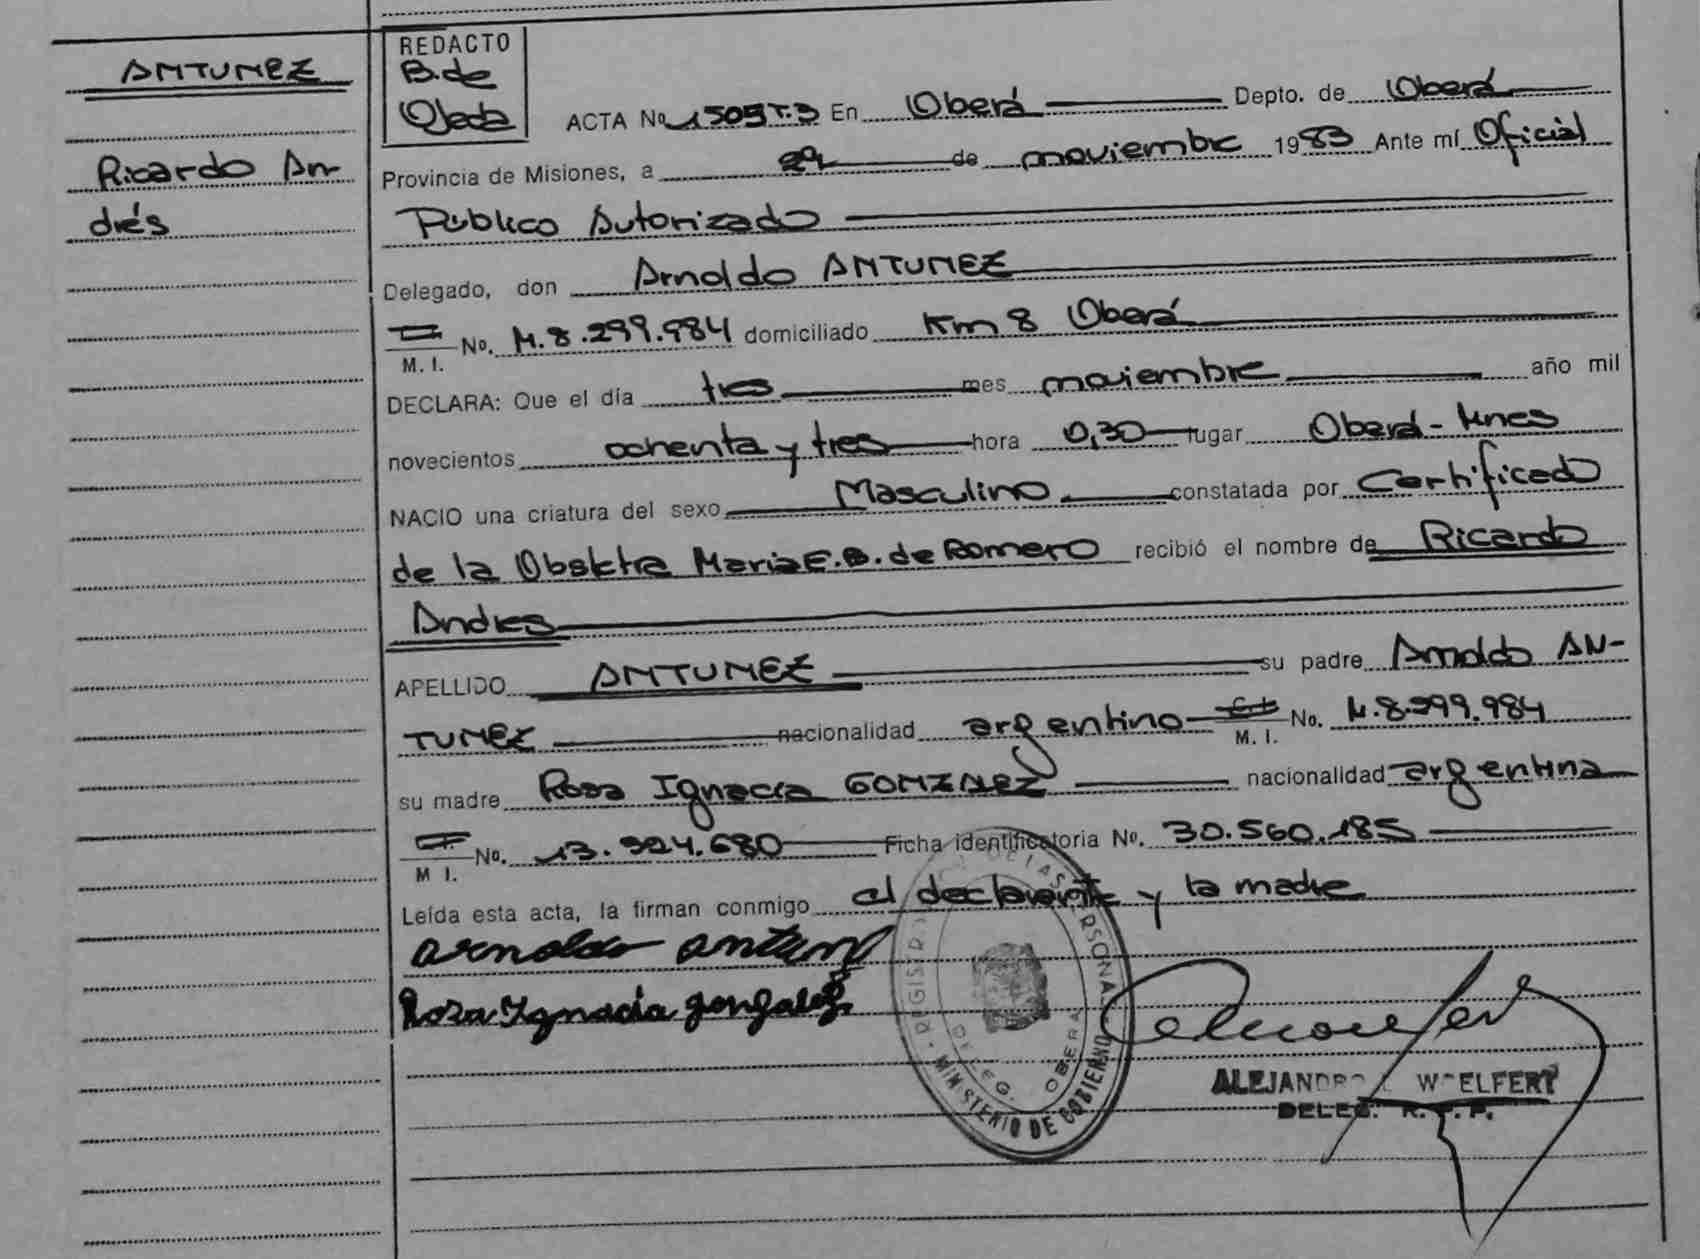 ANTUNEZ
Ricardo An-
drés
REDACTO
B. de
Ojeda
ACTA No 1505 T.3 En Oberá Depto. de Oberá
Provincia de Misiones, a de noviembre 1983 Ante mí Oficial
Público Autorizado
Delegado, don Arnoldo ANTUNEZ
M. I. No. M.8.299.984 domiciliado Km 8 Oberá
DECLARA: Que el día tres mes noviembre año mil
novecientos ochenta y tres hora 0,30 lugar Oberá - Mnes
NACIO una criatura del sexo Masculino constatada por Certificado
de la Obstetra Maria E. B. de Romero recibió el nombre de Ricardo
Andres
APELLIDO ANTUNEZ su padre Arnoldo AN-
TUNEZ nacionalidad argentino M. I. No. M.8.299.984
su madre Rosa Ignacia GONZALEZ nacionalidad argentina
M I. No. 13.924.680 Ficha identificatoria No. 30.560.185
Leída esta acta, la firman conmigo el declarante y la madre
arnoldo antun
Rosa Ignacia gonzalez
REGISTR DE LAS PERSONAS
DELEG. OBERA
MINISTERIO DE GOBIERNO
ALEJANDRO WOELFERT
DELEG. R. P. P.